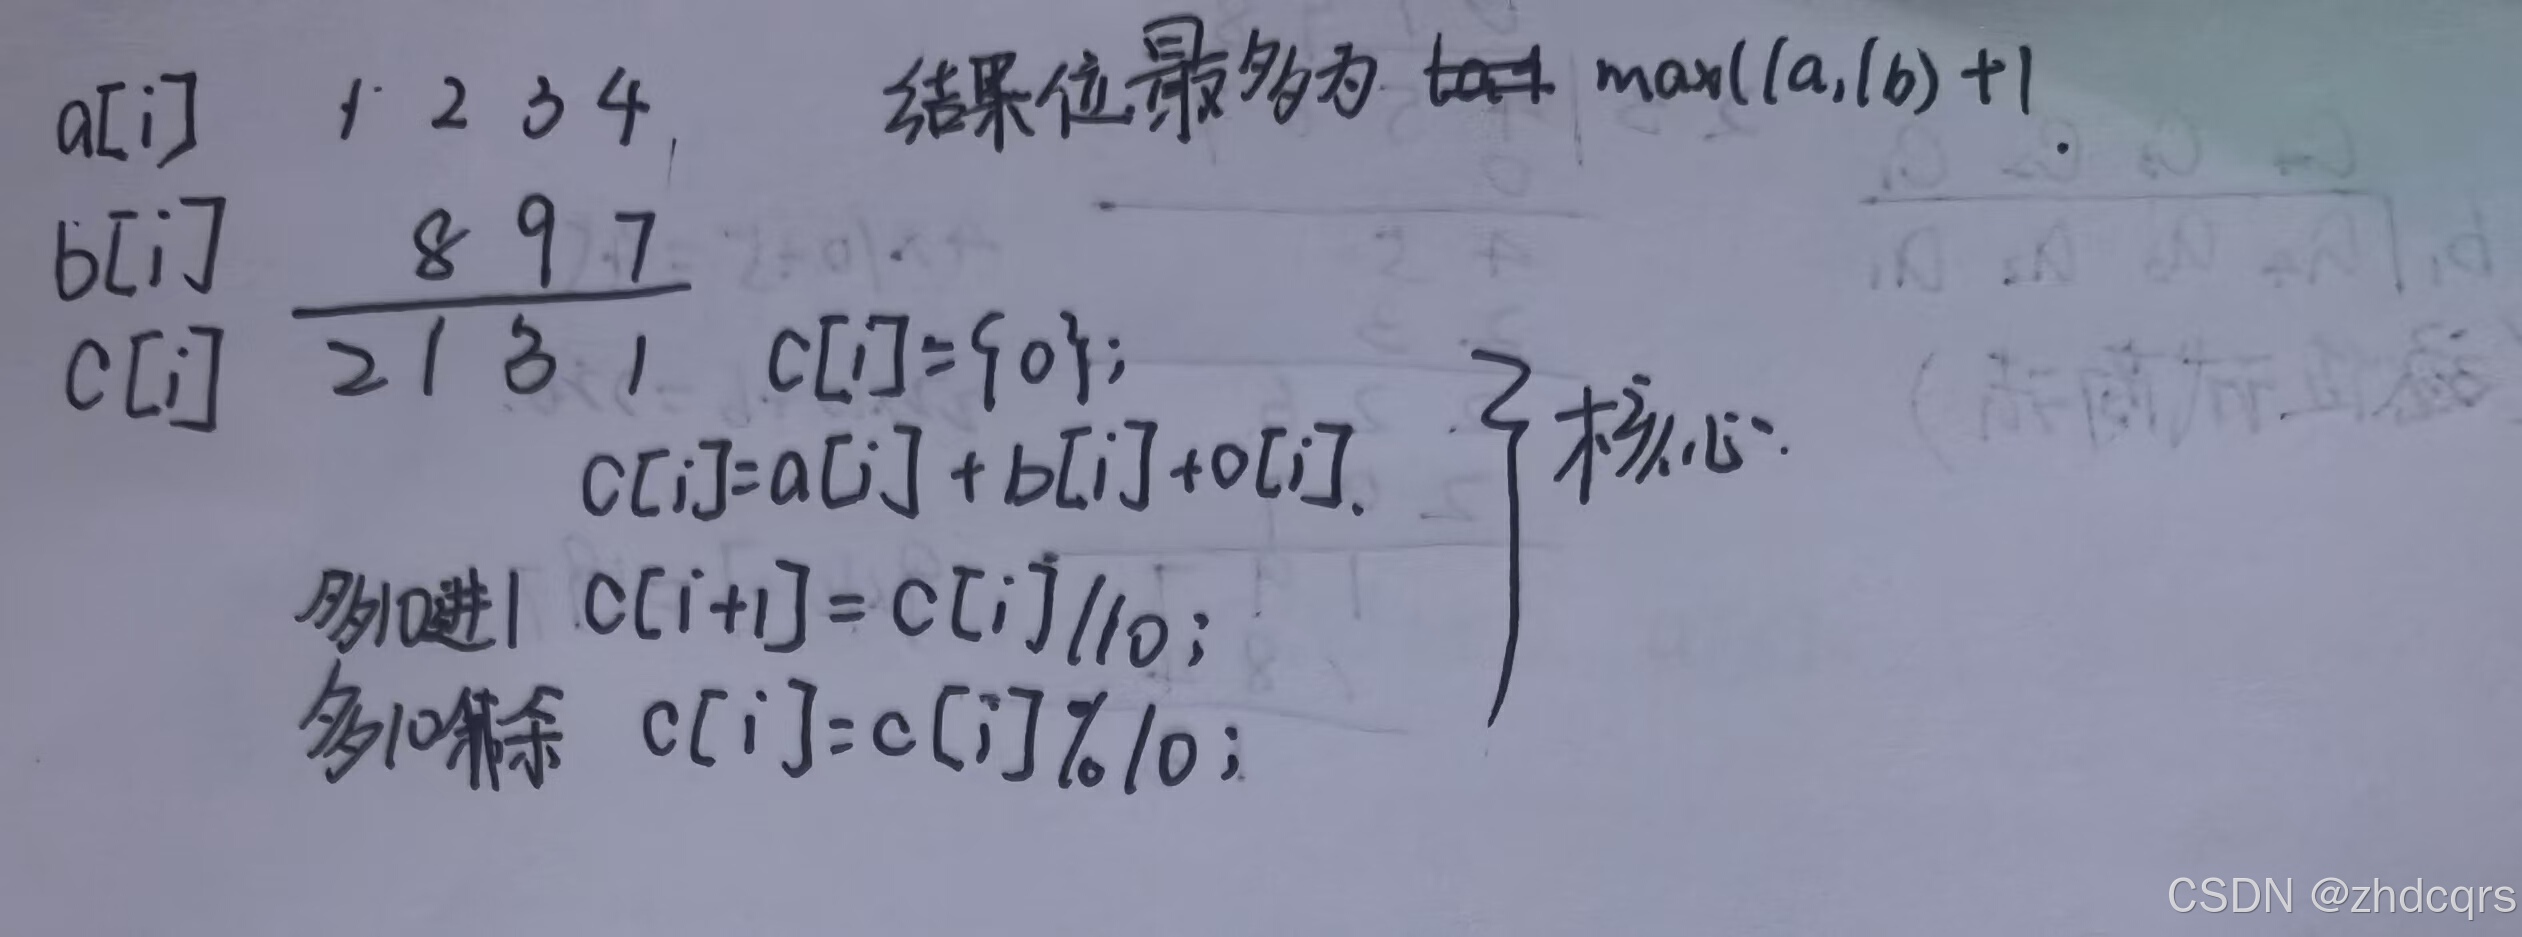 a[i] 1 2 3 4 结果位最多为 max(la,lb)+1
b[i] 8 9 7
c[i] 2 1 3 1 c[i]={0};
c[i]=a[i]+b[i]+c[i].
核心:
多10进1 c[i+1]=c[i]/10;
多10得余 c[i]=c[i]%10;
CSDN @zhdcqrs